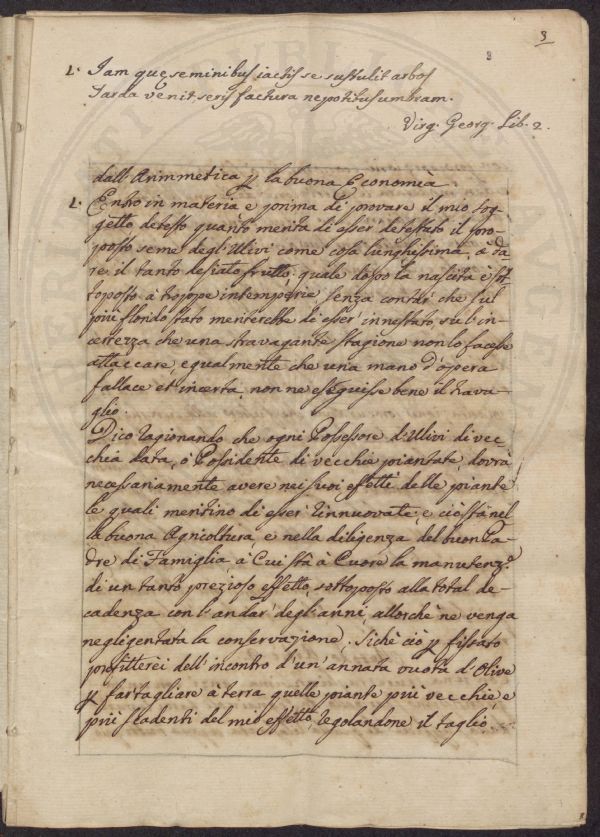 3
1. Jam quę seminibus iactis se sustulit arbos
Tarda venit, seris factura nepotibus umbram.
Virg. Georg. Lib. 2.
dall'Arimmetica p la buona Economìa
1. Entro in materia e prima di provare il mio sog-
getto detesto quanto merita di esser detestato il pro-
posto seme degl'Ulivi come cosa lunghissima, à da
re il tanto desiato frutto, quale dopo la nascita è sot
toposto à troppe intemperie, senza contar che sul
più florido stato meriterebbe di esser innestato sù l'in-
certezza che una stravagante stagione non lo facesse
attaccare, equalmente che una mano d'opera
fallace et incerta, non ne eseguisse bene il trava-
glio.
Dico ragionando che ogni Possessore d'Ulivi di vec
chia data, ò Possidente di vecchie piantate, dovrà
necessariamente avere nei suoi effetti delle piante
le quali meritino di esser rinnuovate, e ciò stà nel
la buona Agricoltura, e nella diligenza del buon Pa-
dre di Famiglia, à Cui stà à Cuore la manutenz.e
di un tanto prezioso effetto, sottoposto alla total de-
cadenza con l'andar degl'anni, allorchè ne venga
negligentata la conservazione; Sichè ciò p fissato
profitterei dell'incontro d'un'annata vuota d'Olive
p far tagliare à terra quelle piante più vecchie, e
più scadenti del mio effetto, regolandone il taglio